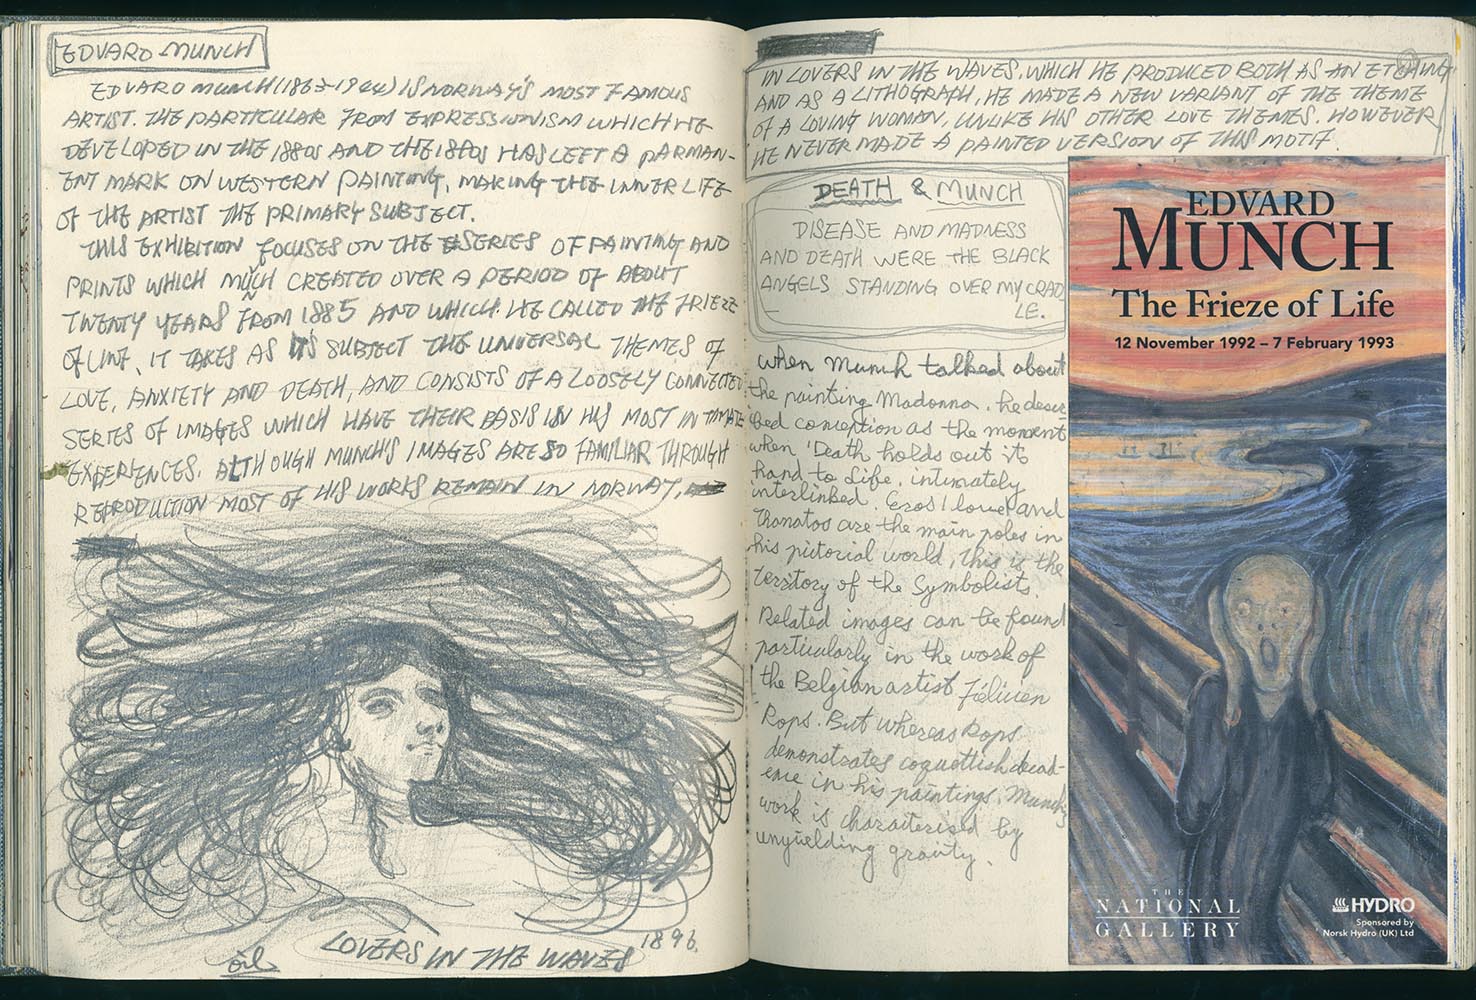 EDVARD MUNCH
EDVARD MUNCH (1863-1944) IS NORWAY'S MOST FAMOUS
ARTIST. THE PARTICULAR FROM EXPRESSIONISM WHICH HE
DEVELOPED IN THE 1880s AND THE 1890s HAS LEFT A PARMAN-
ENT MARK ON WESTERN PAINTING, MAKING THE INNER LIFE
OF THE ARTIST THE PRIMARY SUBJECT.
THIS EXHIBITION FOCUSES ON THE SERIES OF PAINTING AND
PRINTS WHICH MUCH CREATED OVER A PERIOD OF ABOUT
TWENTY YEARS FROM 1885 AND WHICH HE CALLED THE FRIEZE
OF LINF, IT TAKES AS ITS SUBJECT THE UNIVERSAL THEMES OF
LOVE, ANXIETY AND DEATH, AND CONSISTS OF A LOOSELY CONNECTED
SERIES OF IMAGES WHICH HAVE THEIR BASIS IN HIS MOST INTIMATE
EXPERIENCES. ALTHOUGH MUNCH'S IMAGES ARE SO FAMILIAR THROUGH
REPRODUCTION MOST OF HIS WORKS REMAIN IN NORWAY.
LOVERS IN THE WAVES 1896.
oil
IN LOVERS IN THE WAVES, WHICH HE PRODUCED BOTH AS AN ETCHING
AND AS A LITHOGRAPH, HE MADE A NEW VARIANT OF THE THEME
OF A LOVING WOMAN, UNLIKE HIS OTHER LOVE THEMES. HOWEVER
HE NEVER MADE A PAINTED VERSION OF THIS MOTIF.
DEATH & MUNCH
DISEASE AND MADNESS
AND DEATH WERE THE BLACK
ANGELS STANDING OVER MY CRAD
LE.
When Munch talked about
the painting Madonna. he descr-
ibed conception as the moment
when 'Death holds out its
hand to Life. intimately
interlinked. Eros / love and
Thanatos are the main poles in
his pictorial world, This is the
territory of the Symbolists.
Related images can be found
particularly in the work of
the Belgian artist Félicien
Rops. But whereas Rops
demonstrates coquettish decad-
ence in his paintings, Munch's
work is characterised by
unyielding gravity.
EDVARD
MUNCH
The Frieze of Life
12 November 1992 – 7 February 1993
THE
NATIONAL
GALLERY
HYDRO
Sponsored by
Norsk Hydro (UK) Ltd